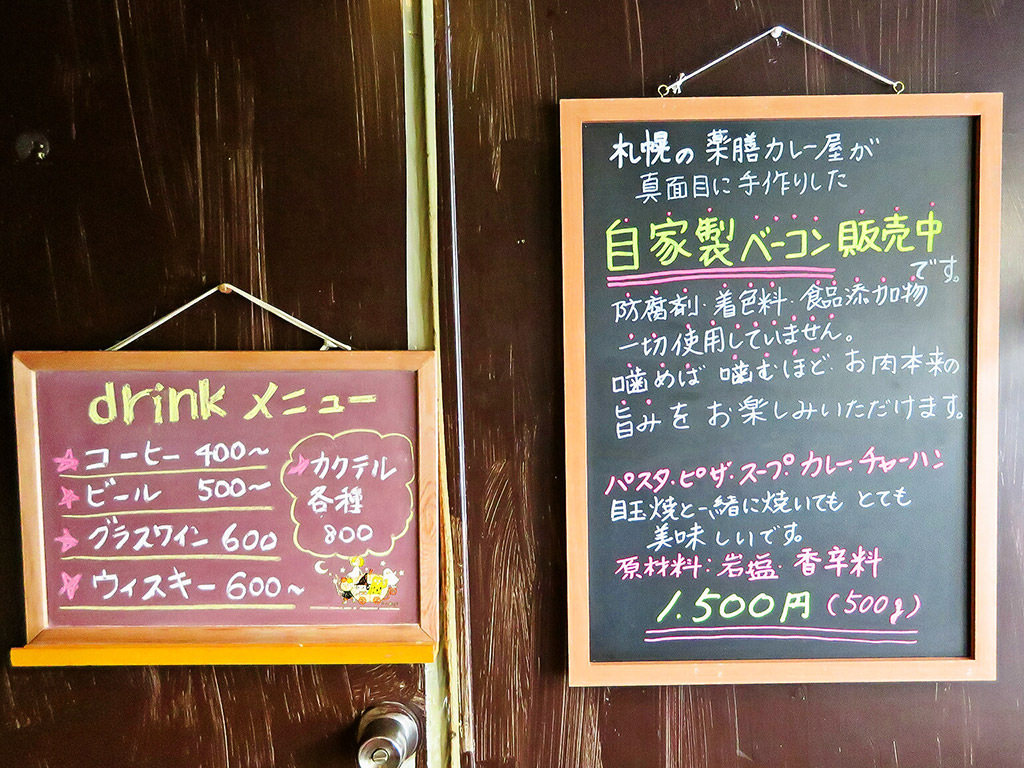 drink メニュー
コーヒー 400〜
ビール 500〜
グラスワイン 600
ウィスキー 600〜
カクテル
各種
800
札幌の 薬膳カレー屋が
真面目に手作りした
自家製ベーコン販売中
です。
防腐剤・着色料・食品添加物
一切使用していません。
噛めば 噛むほど お肉本来の
旨みを お楽しみいただけます。
パスタ・ピザ・スープ・カレー・チャーハン
目玉焼と一緒に焼いても とても
美味しいです。
原材料：岩塩・香辛料
1.500円 (500g)